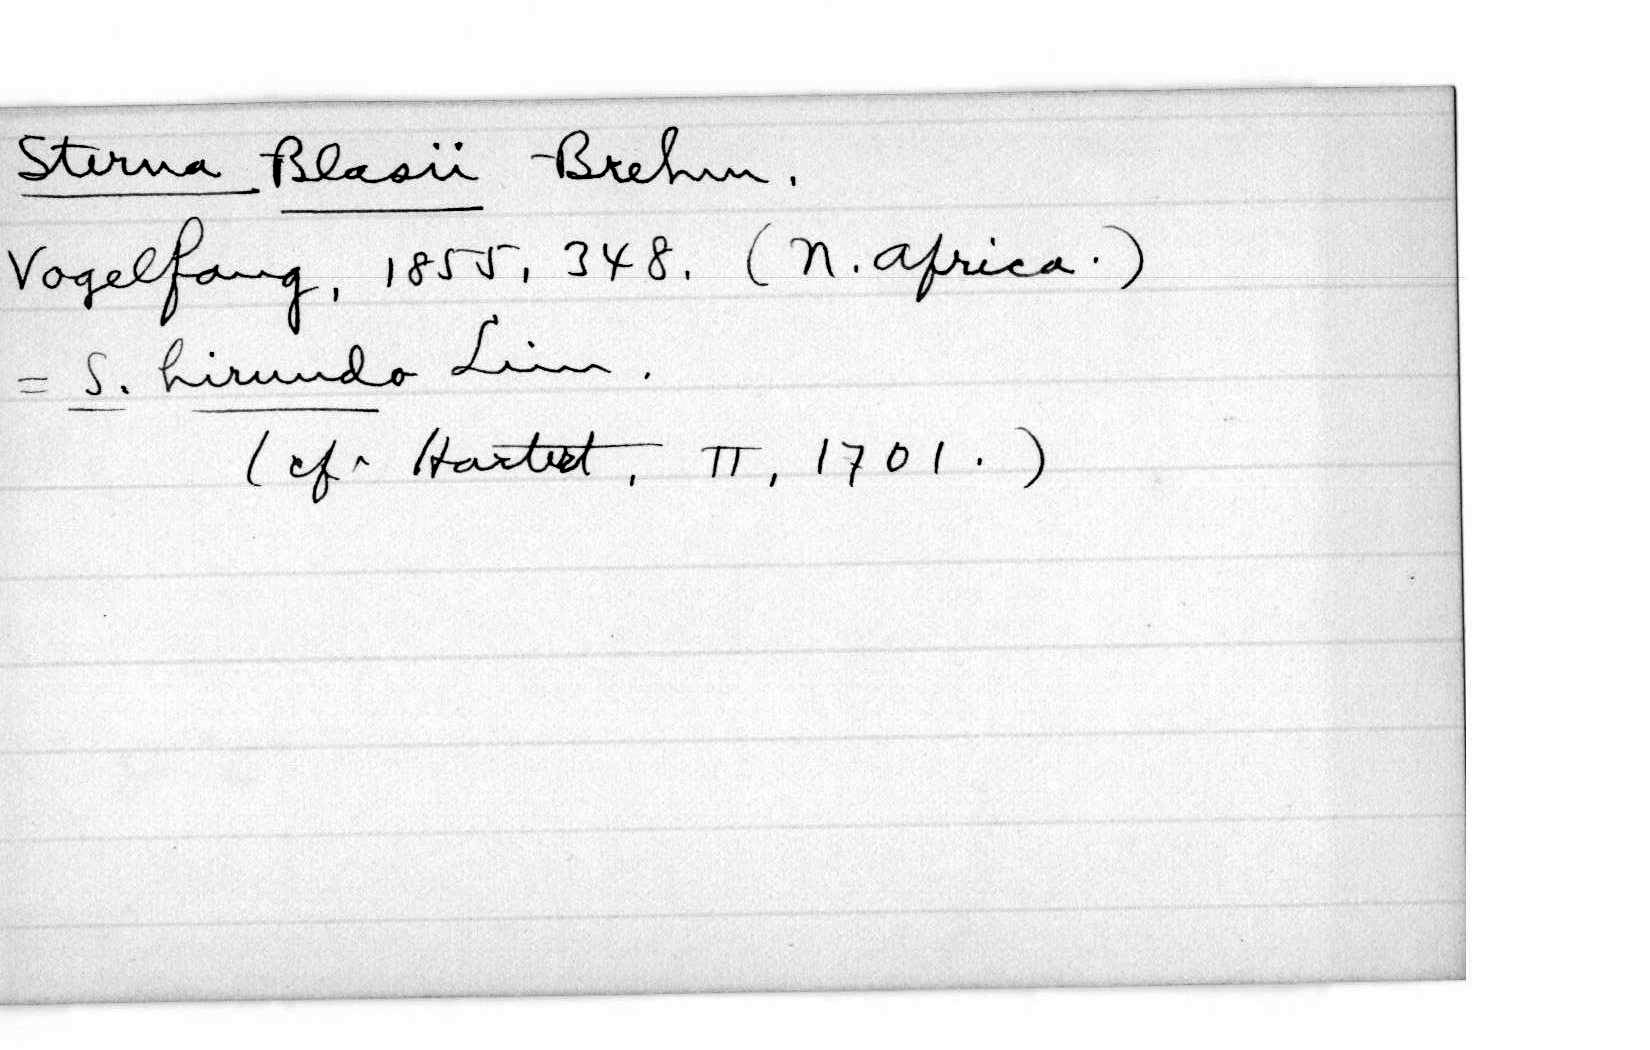 Sterna Blasii Brehm.
Vogelfang, 1855, 348. (N. Africa.)
= S. hirundo Linn.
(cf. Hartert, II, 1701.)